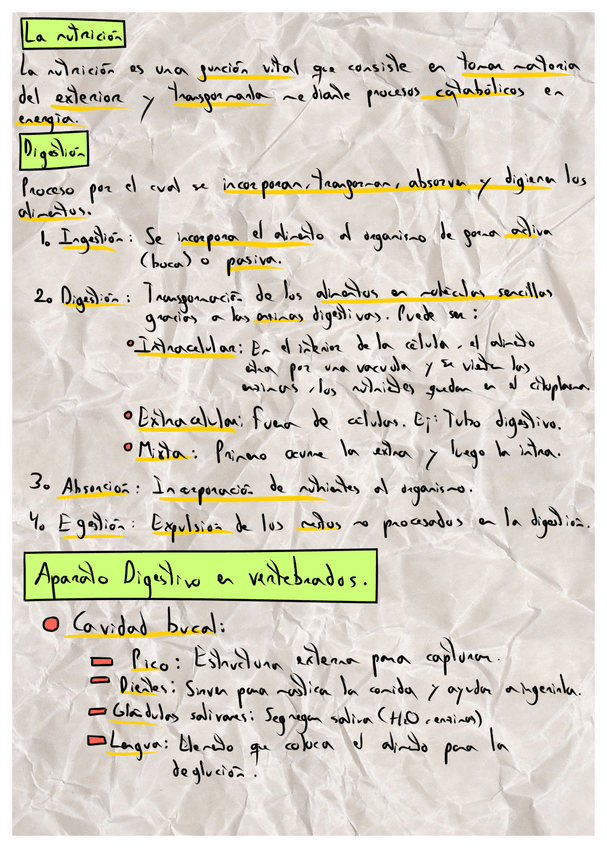 La nutrición
La nutrición es una función vital que consiste en tomar materia
del exterior y transformarla mediante procesos catabólicos en
energía.
Digestión
Proceso por el cual se incorporan, transforman, absorven y digieren los
alimentos.
1. Ingestión: Se incorpora el alimento al organismo de forma activa
(boca) o pasiva.
2. Digestión: Transformación de los alimentos en moléculas sencillas
gracias a las enzimas digestivas. Puede ser:
Intracelular: En el interior de la célula, el alimento
entra por una vacuola y se vierten las
enzimas, los nutrientes quedan en el citoplasma
Extracelular: Fuera de células. Ej: Tubo digestivo.
Mixta: Primero ocurre la extra y luego la intra.
3. Absorción: Incorporación de nutrientes al organismo.
4. Egestión: Expulsión de los restos no procesados en la digestión.
Aparato Digestivo en vertebrados.
Cavidad bucal:
Pico: Estructura externa para capturar.
Dientes: Sirven para mastica la comida y ayudar a ingerirla.
Glándulas salivares: Segregan saliva (H2O, enzimas)
Lengua: Elemento que coloca el alimento para la
deglución.